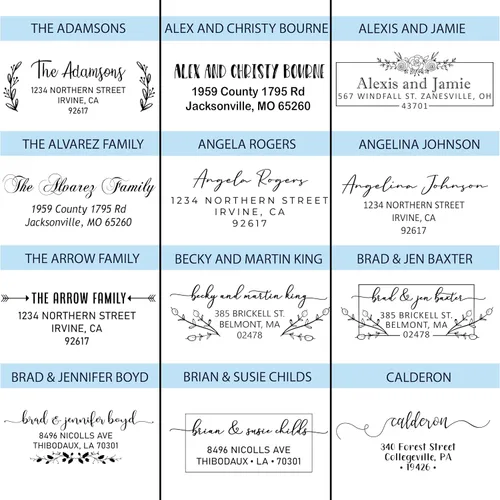 THE ADAMSONS
The Adamsons
1234 NORTHERN STREET
IRVINE, CA
92617
ALEX AND CHRISTY BOURNE
ALEX AND CHRISTY BOURNE
1959 County 1795 Rd
Jacksonville, MO 65260
ALEXIS AND JAMIE
Alexis and Jamie
567 WINDFALL ST. ZANESVILLE, OH
43701
THE ALVAREZ FAMILY
The Alvarez Family
1959 County 1795 Rd
Jacksonville, MO 65260
ANGELA ROGERS
Angela Rogers
1234 NORTHERN STREET
IRVINE, CA
92617
ANGELINA JOHNSON
Angelina Johnson
1234 NORTHERN STREET
IRVINE, CA
92617
THE ARROW FAMILY
THE ARROW FAMILY
1234 NORTHERN STREET
IRVINE, CA
92617
BECKY AND MARTIN KING
becky and martin king
385 BRICKELL ST.
BELMONT, MA
02478
BRAD & JEN BAXTER
brad & jen baxter
385 BRICKELL ST.
BELMONT, MA
02478
BRAD & JENNIFER BOYD
brad & jennifer boyd
8496 NICOLLS AVE
THIBODAUX, LA 70301
BRIAN & SUSIE CHILDS
brian & susie childs
8496 NICOLLS AVE
THIBODAUX • LA • 70301
CALDERON
calderon
340 Forest Street
Collegeville, PA
• 19426 •